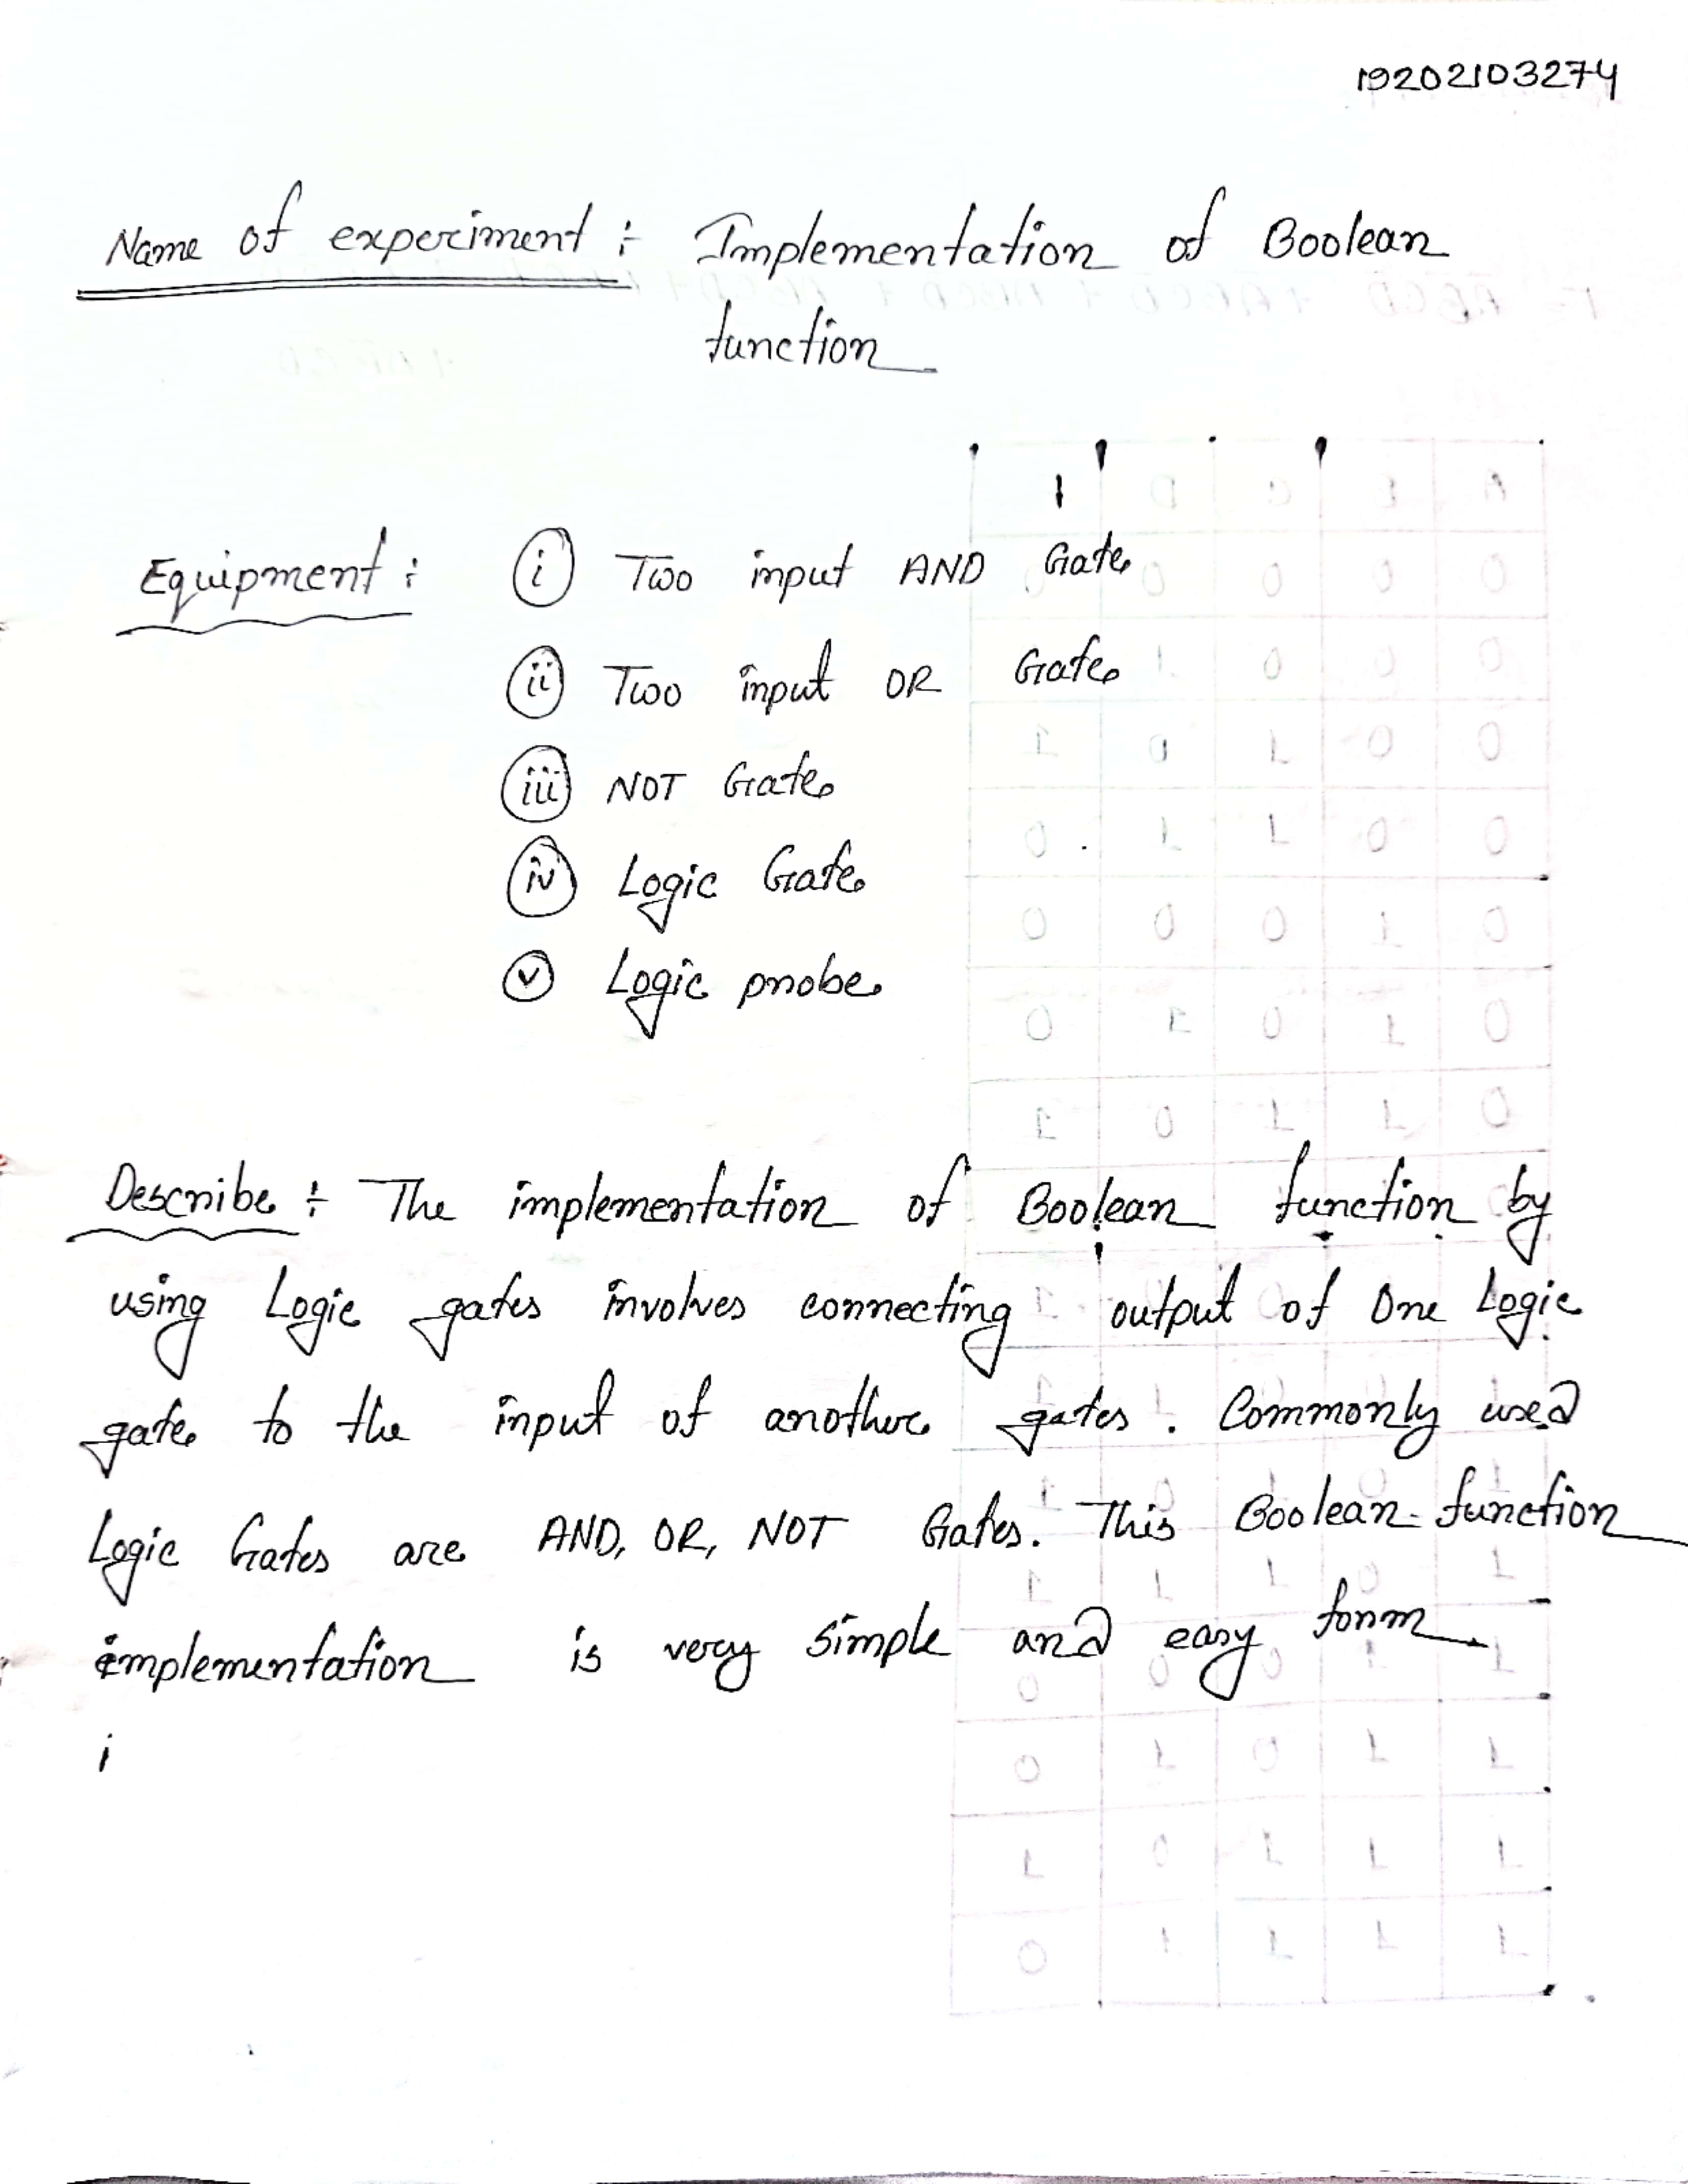 19202103274
Name of experiment : Implementation of Boolean
function
Equipment : (i) Two input AND Gate
(ii) Two input OR Gate
(iii) NOT Gate
(iv) Logic Gate
(v) Logic probe
Describe : The implementation of Boolean function by
using Logic gates involves connecting output of One Logic
gate to the input of another gates . Commonly used
Logic Gates are AND, OR, NOT Gates. This Boolean function
implementation is very simple and easy form